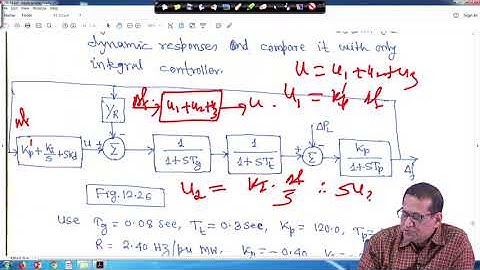 Home
Tools
Sign In
dynamic responses and compare it with only
integral controller.
U = U₁ + U₂ + U₃
1/R
Δf
U₁ + U₂ + U₃
U
U₁ = K'p · Δf
Δf
K'p + KI/S + SKd
U
Σ
1/(1+STg)
1/(1+STt)
ΔPL
Σ
Kp/(1+STp)
Δf
Fig.12.26
U₂ = KI · Δf/S ∴ SU₂
Use Tg = 0.08 sec, Tt = 0.3 sec, Kp = 120.0, Tp =
R = 2.40 Hz/pu MW.